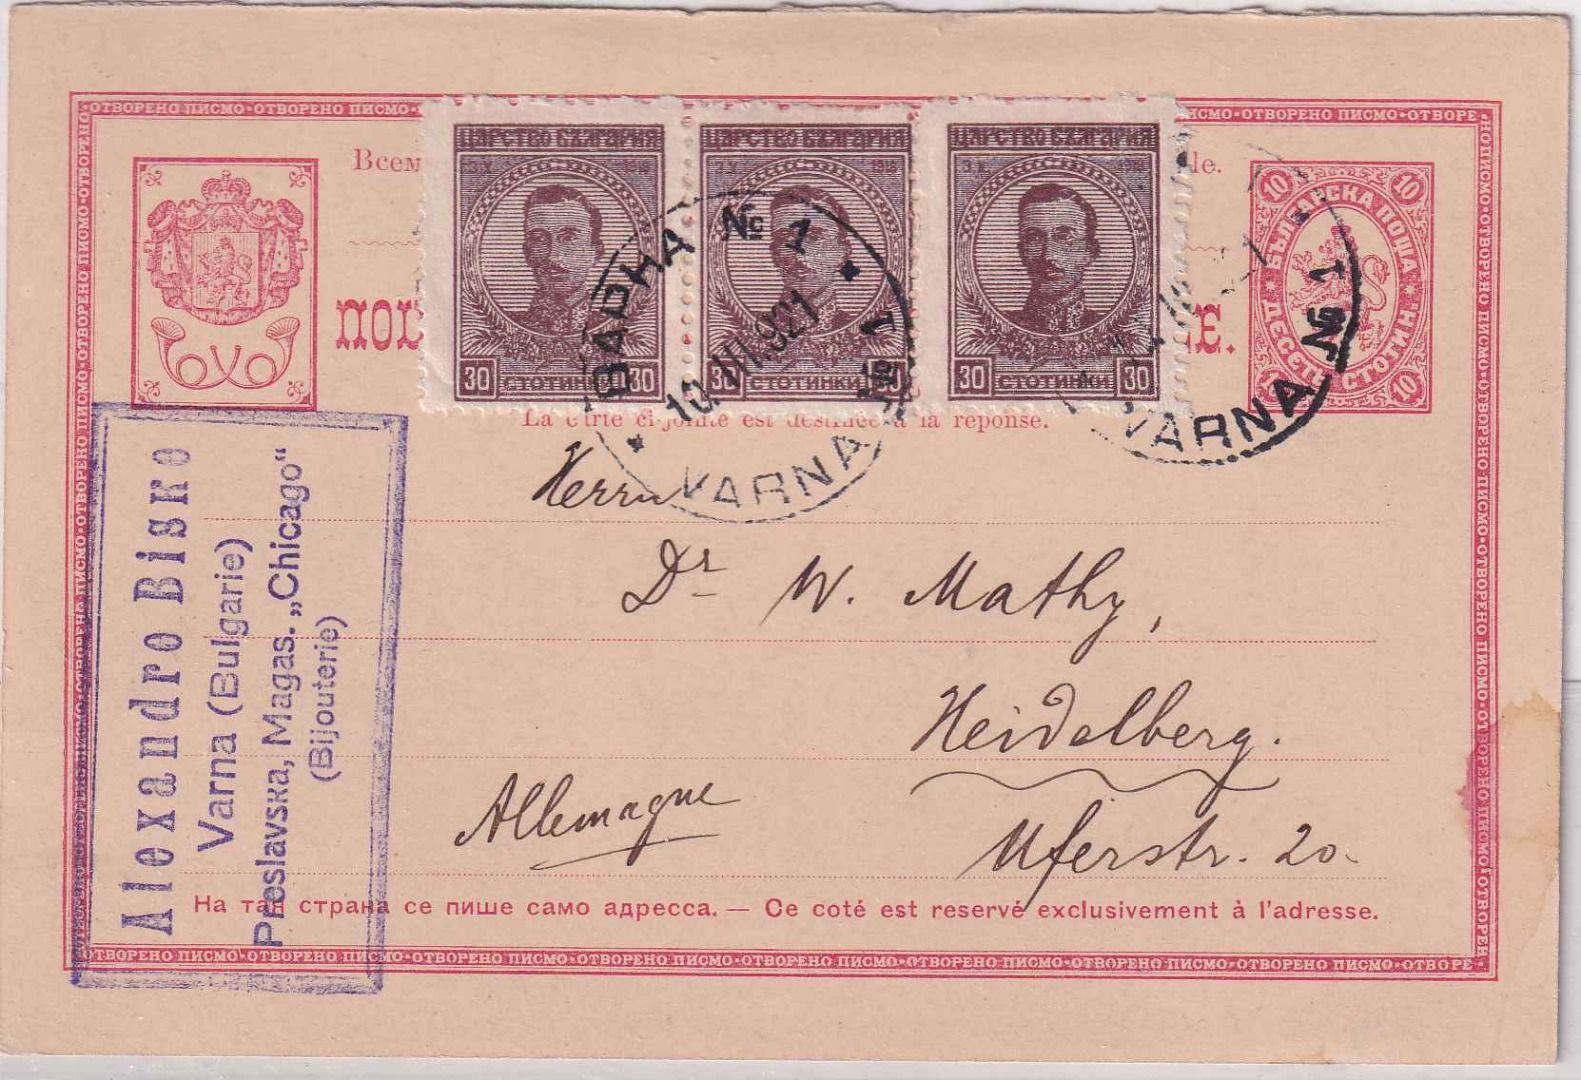 ОТВОРЕНО ПИСМО·ОТВОРЕНО ПИСМО·
Всем
le.
ЦАРСТВО БЪЛГАРИЯ
3 X 1918
30 СТОТИНКИ 30
ЦАРСТВО БЪЛГАРИЯ
3 X 1918
30 СТОТИНКИ 30
ЦАРСТВО БЪЛГАРИЯ
3 X 1918
30 СТОТИНКИ 30
БЪЛГАРСКА ПОЩА
ДЕСЕТЬ СТОТИН.
10 10
10 10
E.
ВАРНА № 1
10.III.921
VARNA № 1
VARNA № 1
La carte ci-jointe est destinée à la reponse.
Herrn
Dr W. Mathy,
Heidelberg.
Allemagne
Uferstr. 20.
Alexandro Bisko
Varna (Bulgarie)
Preslavska, Magas. „Chicago“
(Bijouterie)
На тая страна се пише само адресса. — Ce coté est reservé exclusivement à l'adresse.
ОТВОРЕНО ПИСМО·ОТВОРЕНО ПИСМО·ОТВОРЕНО ПИСМО·ОТВОРЕНО ПИСМО·ОТВОРЕНО ПИСМО·ОТВОРЕНО ПИСМО·ОТВОРЕНО ПИСМО·ОТВОРЕНО ПИСМО·ОТВОРЕ